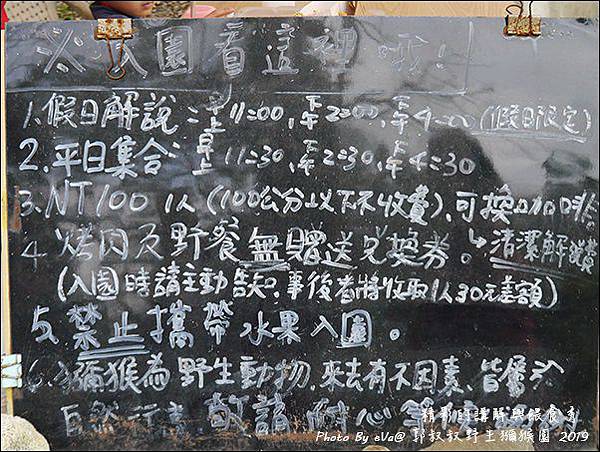 ※入園看這裡哦!
1.假日解說:早上11:00,下午2:00,下午4:00(假日限定)
2.平日集合:早上11:30,下午2:30,下午4:30
3.NT100 1人(100公分以下不收費),可換咖啡
4.烤肉及野餐無贈送兌換券。↳清潔解說費
(入園時請主動告知,事後者將收取1人30元差額)
5.禁止攜帶水果入園。
6.獼猴為野生動物,來去有不因素,皆屬於
自然行為,敬請耐心等候
精彩的講解與餵食秀
Photo By eVa@ 郭叔叔野生獼猴園 2019